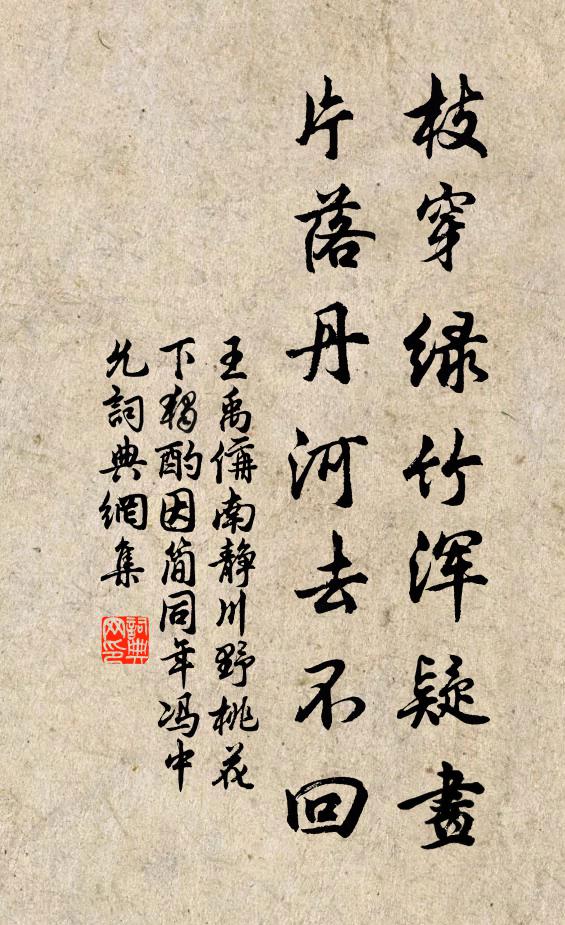 枝穿绿竹浑疑畫
片落丹河去不回
王禹偁南静川野桃花
下独酌因简同年冯中
允詞典網集
詞典网印